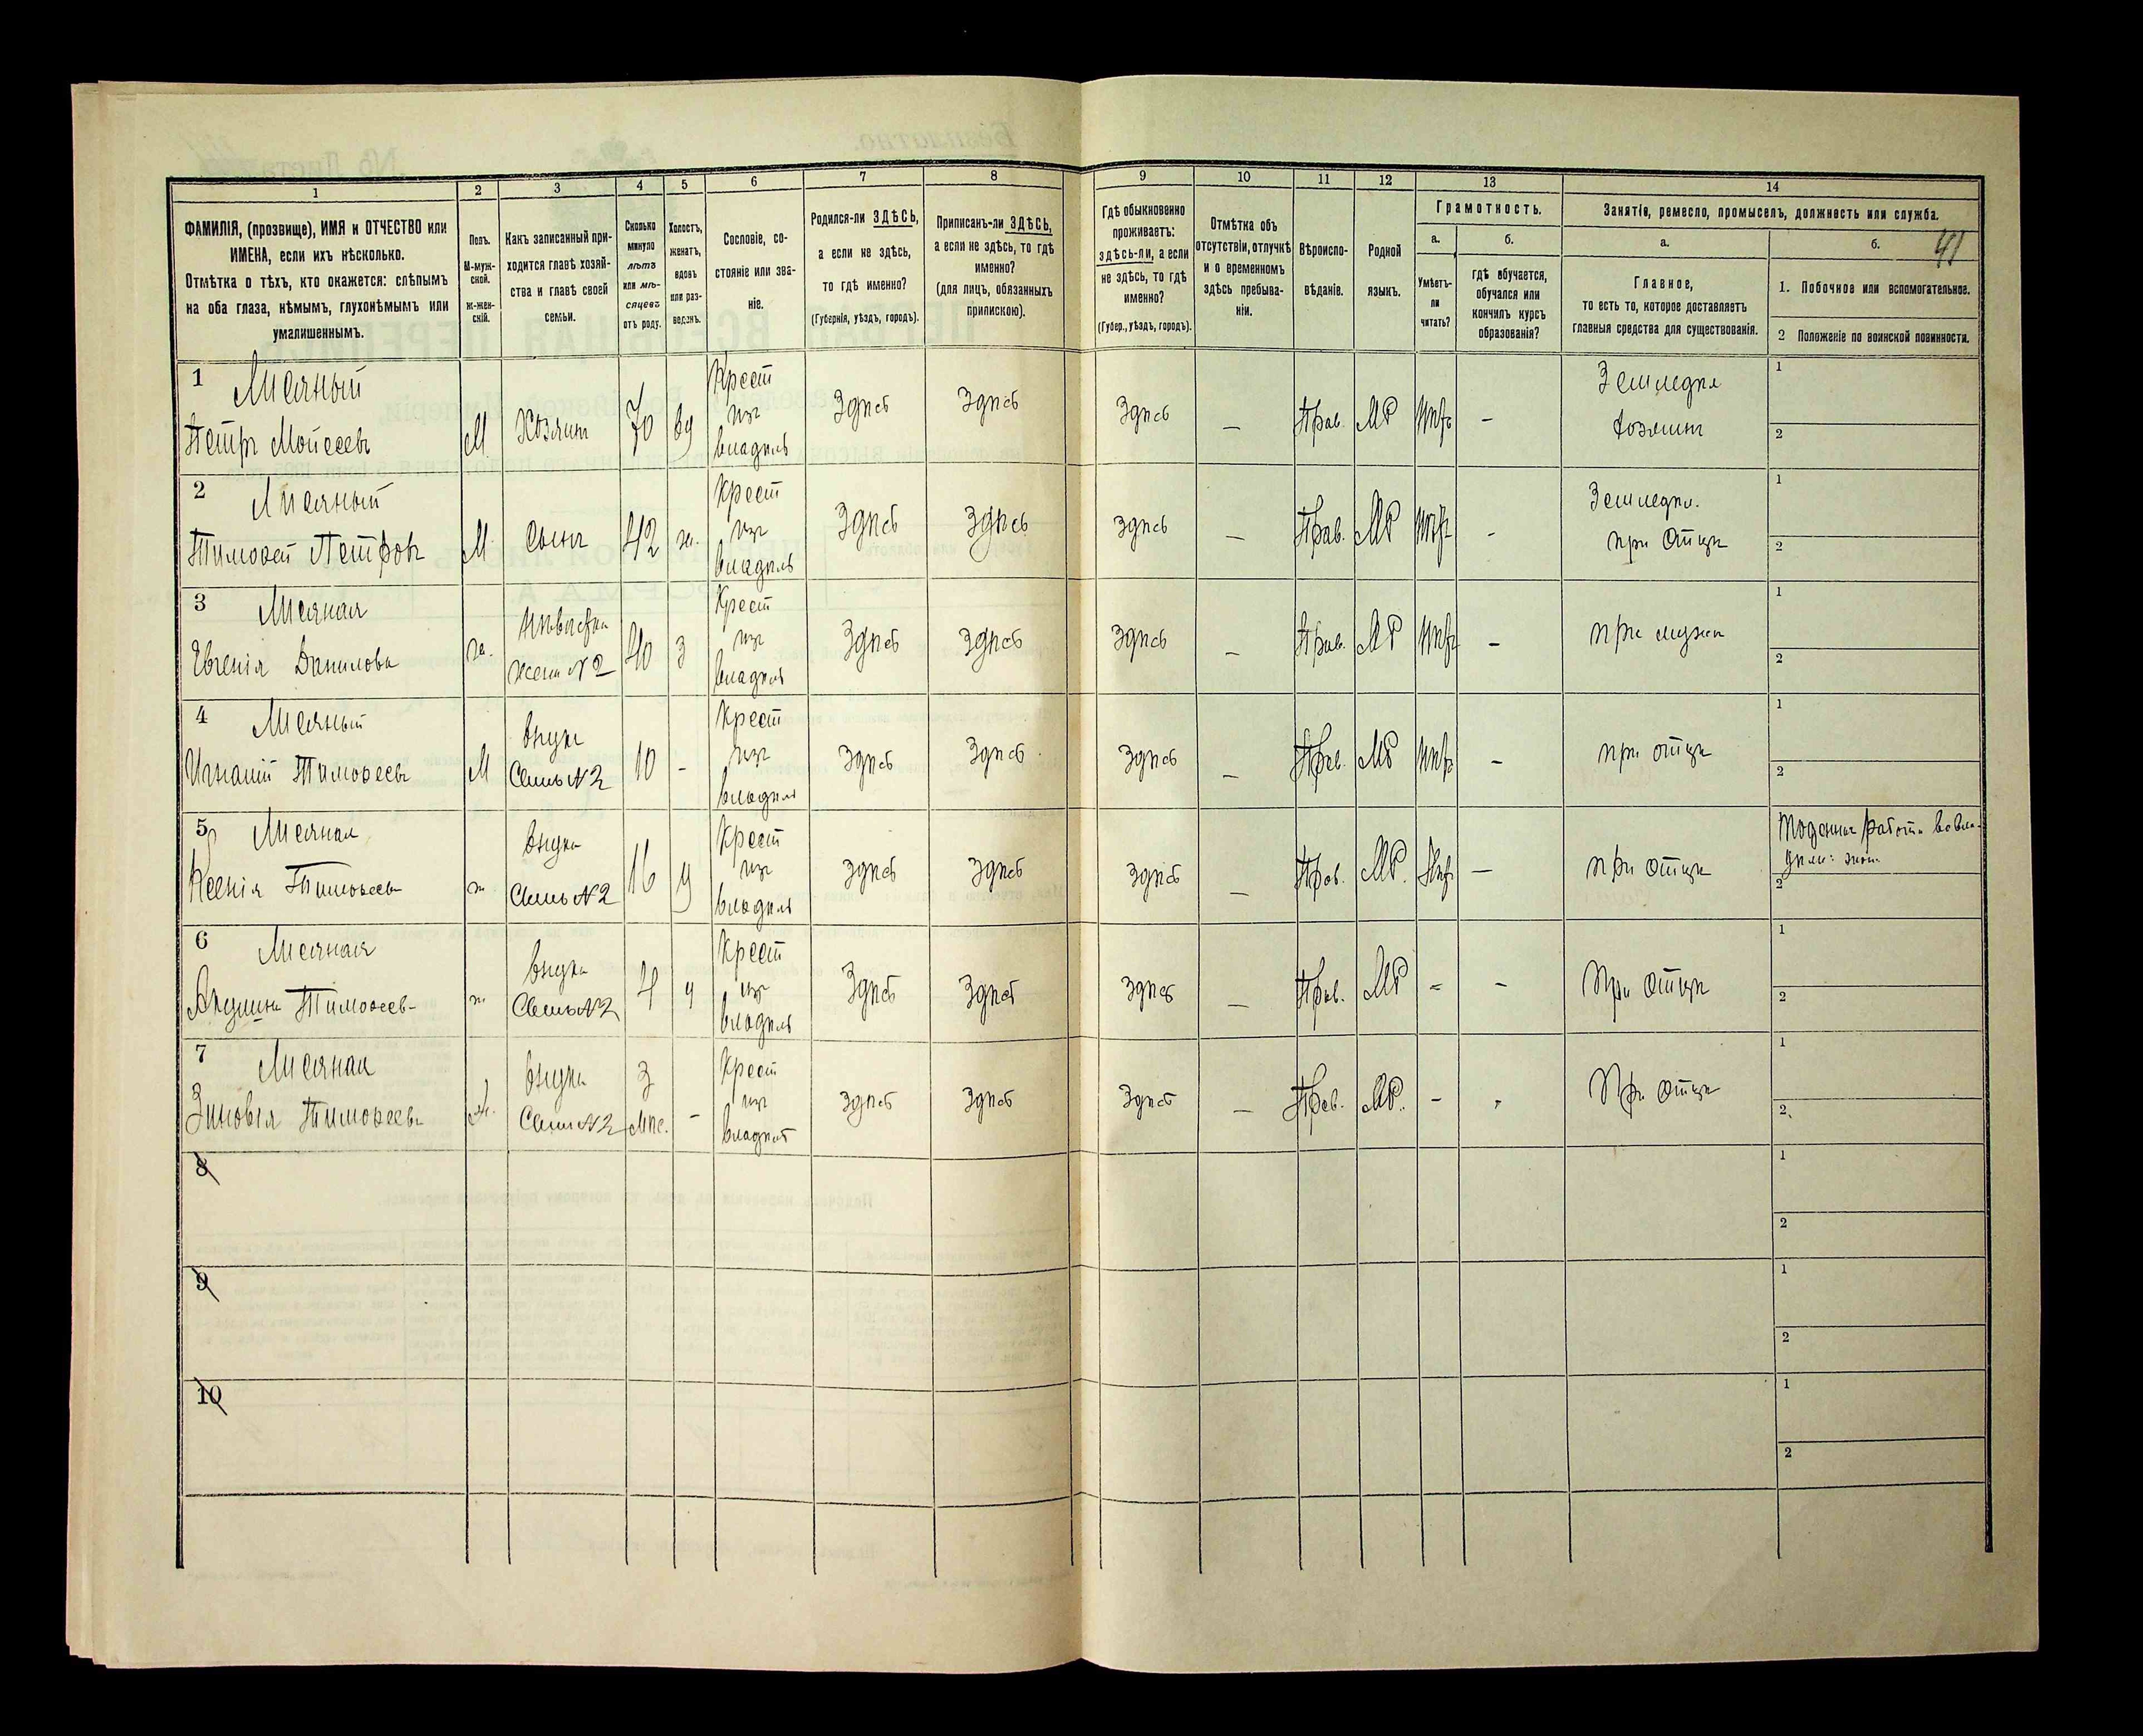 1
ФАМИЛІЯ, (прозвище), ИМЯ и ОТЧЕСТВО или
ИМЕНА, если ихъ нѣсколько.
Отмѣтка о тѣхъ, кто окажется: слѣпымъ
на оба глаза, нѣмымъ, глухонѣмымъ или
умалишеннымъ.
2
Полъ.
М-муж-
ской.
ж-жен-
скій.
3
Какъ записанный при-
ходится главѣ хозяй-
ства и главѣ своей
семьи.
4
Сколько
минуло
лѣтъ
или мѣ-
сяцевъ
отъ роду.
5
Холостъ,
женатъ,
вдовъ
или раз-
веденъ.
6
Сословіе, со-
стояніе или зва-
ніе.
7
Родился-ли ЗДѢСЬ,
а если не здѣсь,
то гдѣ именно?
(Губернія, уѣздъ, городъ).
8
Приписанъ-ли ЗДѢСЬ,
а если не здѣсь, то гдѣ
именно?
(для лицъ, обязанныхъ
припискою).
9
Гдѣ обыкновенно
проживаетъ:
здѣсь-ли, а если
не здѣсь, то гдѣ
именно?
(Губер., уѣздъ, городъ).
10
Отмѣтка объ
отсутствіи, отлучкѣ
и о временномъ
здѣсь пребыва-
ніи.
11
Вѣроиспо-
вѣданіе.
12
Родной
языкъ.
13
Грамотность.
а.
Умѣетъ-
ли
читать?
б.
гдѣ обучается,
обучался или
кончилъ курсъ
образованія?
14
Занятіе, ремесло, промыселъ, должность или служба.
а.
Главное,
то есть то, которое доставляетъ
главныя средства для существованія.
б.
41
1. Побочное или вспомогательное.
2 Положеніе по воинской повинности.
1
Петръ Моисеевъ
М
Хозяинъ
70
ву
Крест
изъ
владѣль
Здѣсь
Здѣсь
Здѣсь
—
Прав.
МР
Нѣтъ
–
Земледѣл
хозяинъ
1
2
2
Тимофей Петровъ
М
Сынъ
42
ж.
Крест
изъ
владѣль
Здѣсь
Здѣсь
Здѣсь
—
Прав.
МР
Нѣтъ
-
Земледѣл.
при Отцѣ
1
2
3
Евгенія Данилова
ж.
Невѣстка
жена №2
40
з
Крест
изъ
владѣль
Здѣсь
Здѣсь
Здѣсь
—
Прав.
МР
Нѣтъ
–
при мужѣ
1
2
4
Игнатій Тимофеевъ
М
Внукъ
Сынъ №2
10
-
Крест
изъ
владѣль
Здѣсь
Здѣсь
Здѣсь
—
Прав.
МР
Нѣтъ
–
при отцѣ
1
2
5
Ксенія Тимофеев-
ж
Внука
№2
16
у
Крест
изъ
владѣль
Здѣсь
Здѣсь
Здѣсь
—
Прав.
МР.
Нѣтъ
—
при отцѣ
2
6
Акулина Тимофеев-
ж
Внука
№2
4
у
Крест
изъ
владѣль
Здѣсь
Здѣсь
Здѣсь
—
Прав.
МР
-
-
При отцѣ
1
2
7
Зиновія Тимофеева
ж.
Внука
№2
3
мѣс.
-
Крест
изъ
владѣль
Здѣсь
Здѣсь
Здѣсь
—
Прав.
МР.
-
При отцѣ
1
2
8
1
2
9
1
2
10
1
2